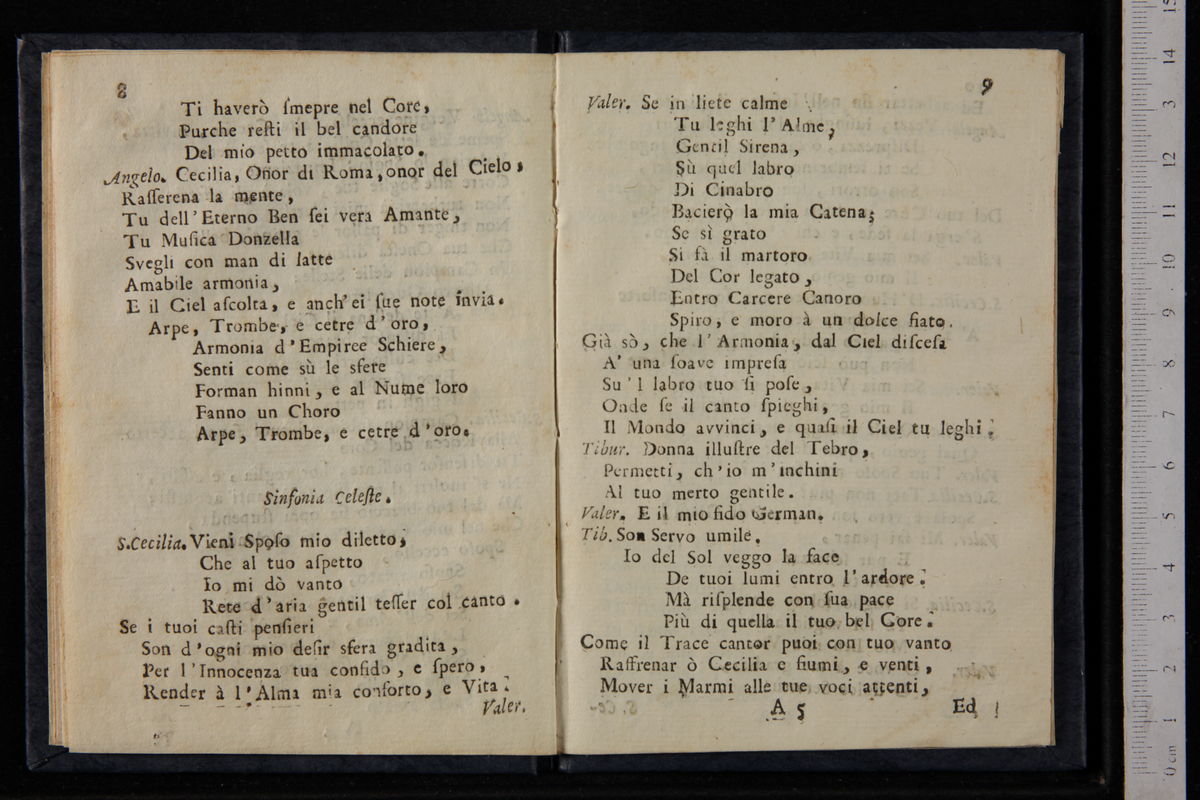 8
Ti haverò ſmepre nel Core,
Purche reſti il bel candore
Del mio petto immacolato.
Angelo. Cecilia, Onor di Roma, onor del Cielo,
Raſſerena la mente,
Tu dell'Eterno Ben ſei vera Amante,
Tu Muſica Donzella
Svegli con man di latte
Amabile armonia,
E il Ciel aſcolta, e anch'ei ſue note invia.
Arpe, Trombe, e cetre d'oro,
Armonia d'Empiree Schiere,
Senti come sù le sfere
Forman hinni, e al Nume loro
Fanno un Choro
Arpe, Trombe, e cetre d'oro.
Sinfonia Celeſte.
S.Cecilia. Vieni Spoſo mio diletto,
Che al tuo aſpetto
Io mi dò vanto
Rete d'aria gentil teſſer col canto.
Se i tuoi caſti penſieri
Son d'ogni mio deſir sfera gradita,
Per l'Innocenza tua confido, e ſpero,
Render à l'Alma mia conforto, e Vita.
Valer.
9
Valer. Se in liete calme
Tu leghi l'Alme,
Gentil Sirena,
Sù quel labro
Di Cinabro
Bacierò la mia Catena;
Se sì grato
Si fà il martoro
Del Cor legato,
Entro Carcere Canoro
Spiro, e moro à un dolce fiato.
Già sò, che l'Armonia, dal Ciel diſceſa
A' una ſoave impreſa
Su'l labro tuo ſi poſe,
Onde ſe il canto ſpieghi,
Il Mondo avvinci, e quaſi il Ciel tu leghi.
Tibur. Donna illuſtre del Tebro,
Permetti, ch'io m'inchini
Al tuo merto gentile.
Valer. E il mio fido German.
Tib. Son Servo umile.
Io del Sol veggo la face
De tuoi lumi entro l'ardore.
Mà riſplende con ſua pace
Più di quella il tuo bel Core.
Come il Trace cantor puoi con tuo vanto
Raffrenar ò Cecilia e fiumi, e venti,
Mover i Marmi alle tue voci attenti,
A 5
Ed